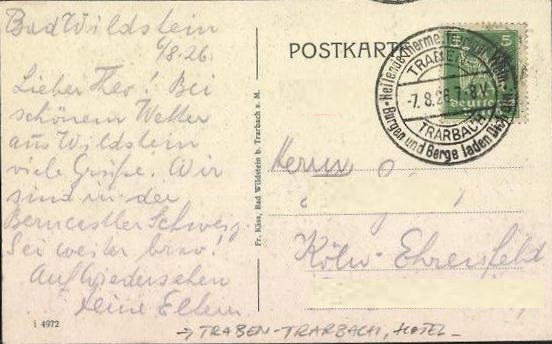 Bad Wildstein
6/8.26.
Lieber Theo! Bei
schönem Wetter
aus Wildstein
viele Grüße. Wir
sind in der
Berncastler Schweiz.
Sei weiter brav!
Auf Wiedersehen
deine Eltern
i 4972
Fr. Klös, Bad Wildstein b. Trarbach a. M.
POSTKARTE
TRABEN-
-7.8.26.7-8V.
TRARBACH
Burgen und Berge laden
5
Herrn
Köln-Ehrenfeld
→ TRABEN-TRARBACH, HOTEL-